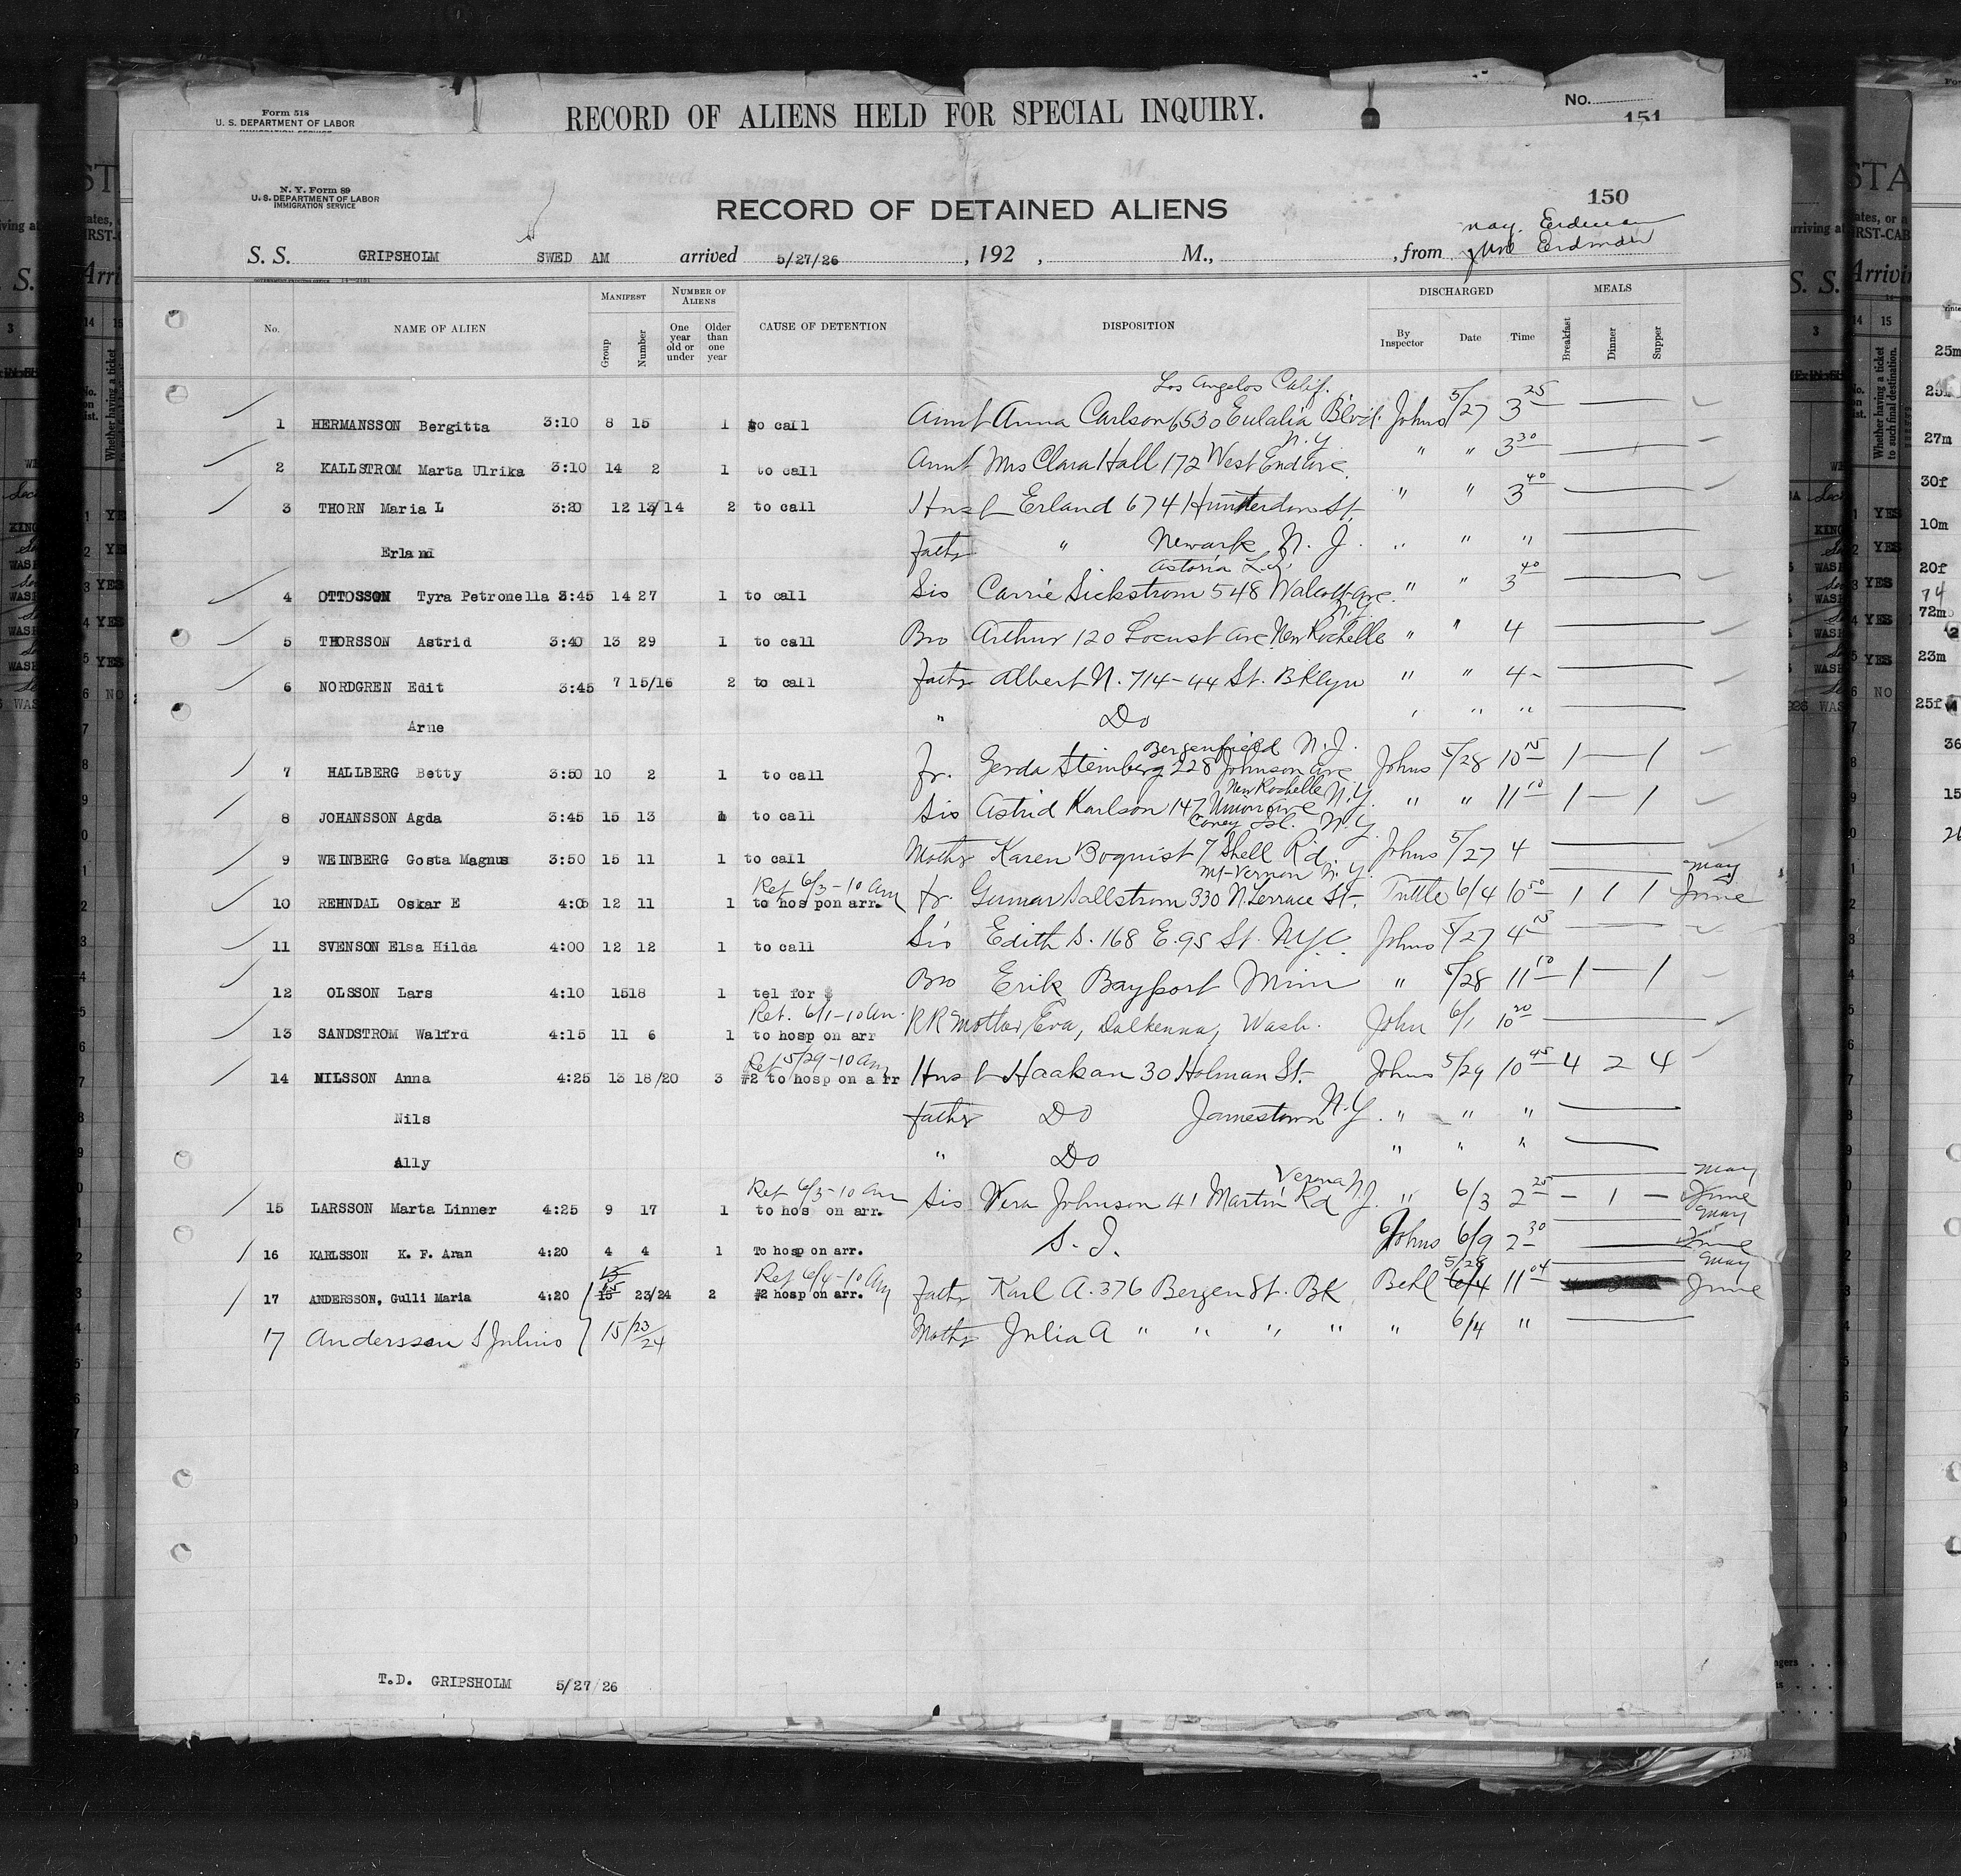 Form 518
U. S. DEPARTMENT OF LABOR
RECORD OF ALIENS HELD FOR SPECIAL INQUIRY.
No.
151
N. Y. Form 89
U. S. DEPARTMENT OF LABOR
IMMIGRATION SERVICE
RECORD OF DETAINED ALIENS
150
May. Erdman
June Erdman
S. S. GRIPSHOLM SWED AM arrived 5/27/26, 192 , M., , from
No. NAME OF ALIEN MANIFEST Group Number NUMBER OF ALIENS One year old or under Older than one year CAUSE OF DETENTION DISPOSITION DISCHARGED By Inspector Date Time MEALS Breakfast Dinner Supper
Los Angelos Calif.
1 HERMANSSON Bergitta 3:10 8 15 1 to call Aunt Anna Carlson 6530 Eulalia Blvd. Johns 5/27 3 25
N.Y.
2 KALLSTROM Marta Ulrika 3:10 14 2 1 to call Aunt Mrs Clara Hall 172 West End Ave. " " 3 30
3 THORN Maria L 3:20 12 13/14 2 to call Husb Erland 674 Hunterdon St. " " 3 40
Erland Fathr " Newark N. J. " " "
Astoria L.I.
4 OTTOSSON Tyra Petronella 3:45 14 27 1 to call Sis Carrie Sickstrom 548 Walcott Ave. " " 3 40
N.Y.
5 THORSSON Astrid 3:40 13 29 1 to call Bro Arthur 120 Locust Ave New Rochelle " " 4
6 NORDGREN Edit 3:45 7 15/16 2 to call Fathr Albert N. 714-44 St. Bklyn " " 4-
Arne " Do " " "
Bergenfield N.J.
7 HALLBERG Betty 3:50 10 2 1 to call Fr. Gerda Steinberg 228 Johnson Ave Johns 5/28 10 15 1 — 1
New Rochelle N.Y.
8 JOHANSSON Agda 3:45 15 13 1 to call Sis Astrid Karlson 147 Union Ave " " 11 10 1 — 1
Coney Isl. N.Y.
9 WEINBERG Gosta Magnus 3:50 15 11 1 to call Mothr Karen Boquist 7 Shell Rd. Johns 5/27 4
Ret 6/3-10 am Mt-Vernon N.Y. May
10 REHNDAL Oskar E 4:05 12 11 1 to hos pon arr. Fr. Gunnar Sallstrom 330 N. Terrace St. Tuttle 6/4 10 50 1 1 1 June
11 SVENSON Elsa Hilda 4:00 12 12 1 to call Sis Edith S. 168 E. 95 St. N.Y.C. Johns 5/27 4 15
12 OLSSON Lars 4:10 1518 1 tel for $ Bro Erik Bayport Minn " 5/28 11 10 1 — 1
Ret. 6/1-10 am.
13 SANDSTROM Walfrd 4:15 11 6 1 to hosp on arr RR Mother Eva, Dalkenna, Wash. John 6/1 10 30
Ret 5/29-10 am
14 NILSSON Anna 4:25 13 18/20 3 #2 to hosp on a rr Husb Haakan 30 Holman St. Johns 5/29 10 45 4 2 4
Nils Fathr Do Jamestown N.Y. " " "
Ally " Do " " "
Ret 6/3-10 am Verona N.J. May
15 LARSSON Marta Linner 4:25 9 17 1 to hos on arr. Sis Vera Johnson 41 Martin Rd " 6/3 2 25 — 1 — June
May
16 KARLSSON K. F. Aran 4:20 4 4 1 To hosp on arr. S. I. Johns 6/9 2 30 June
15 Ret 6/4-10 am 5/28 May
17 ANDERSSON, Gulli Maria 4:20 15 23/24 2 #2 hosp on arr. Fathr Karl A. 376 Bergen St. Bk Behl 6/4 11 04 June
17 Andersson S Julius 15/23/24 Mothr Julia A " " " " " 6/4 "
T.D. GRIPSHOLM 5/27/26